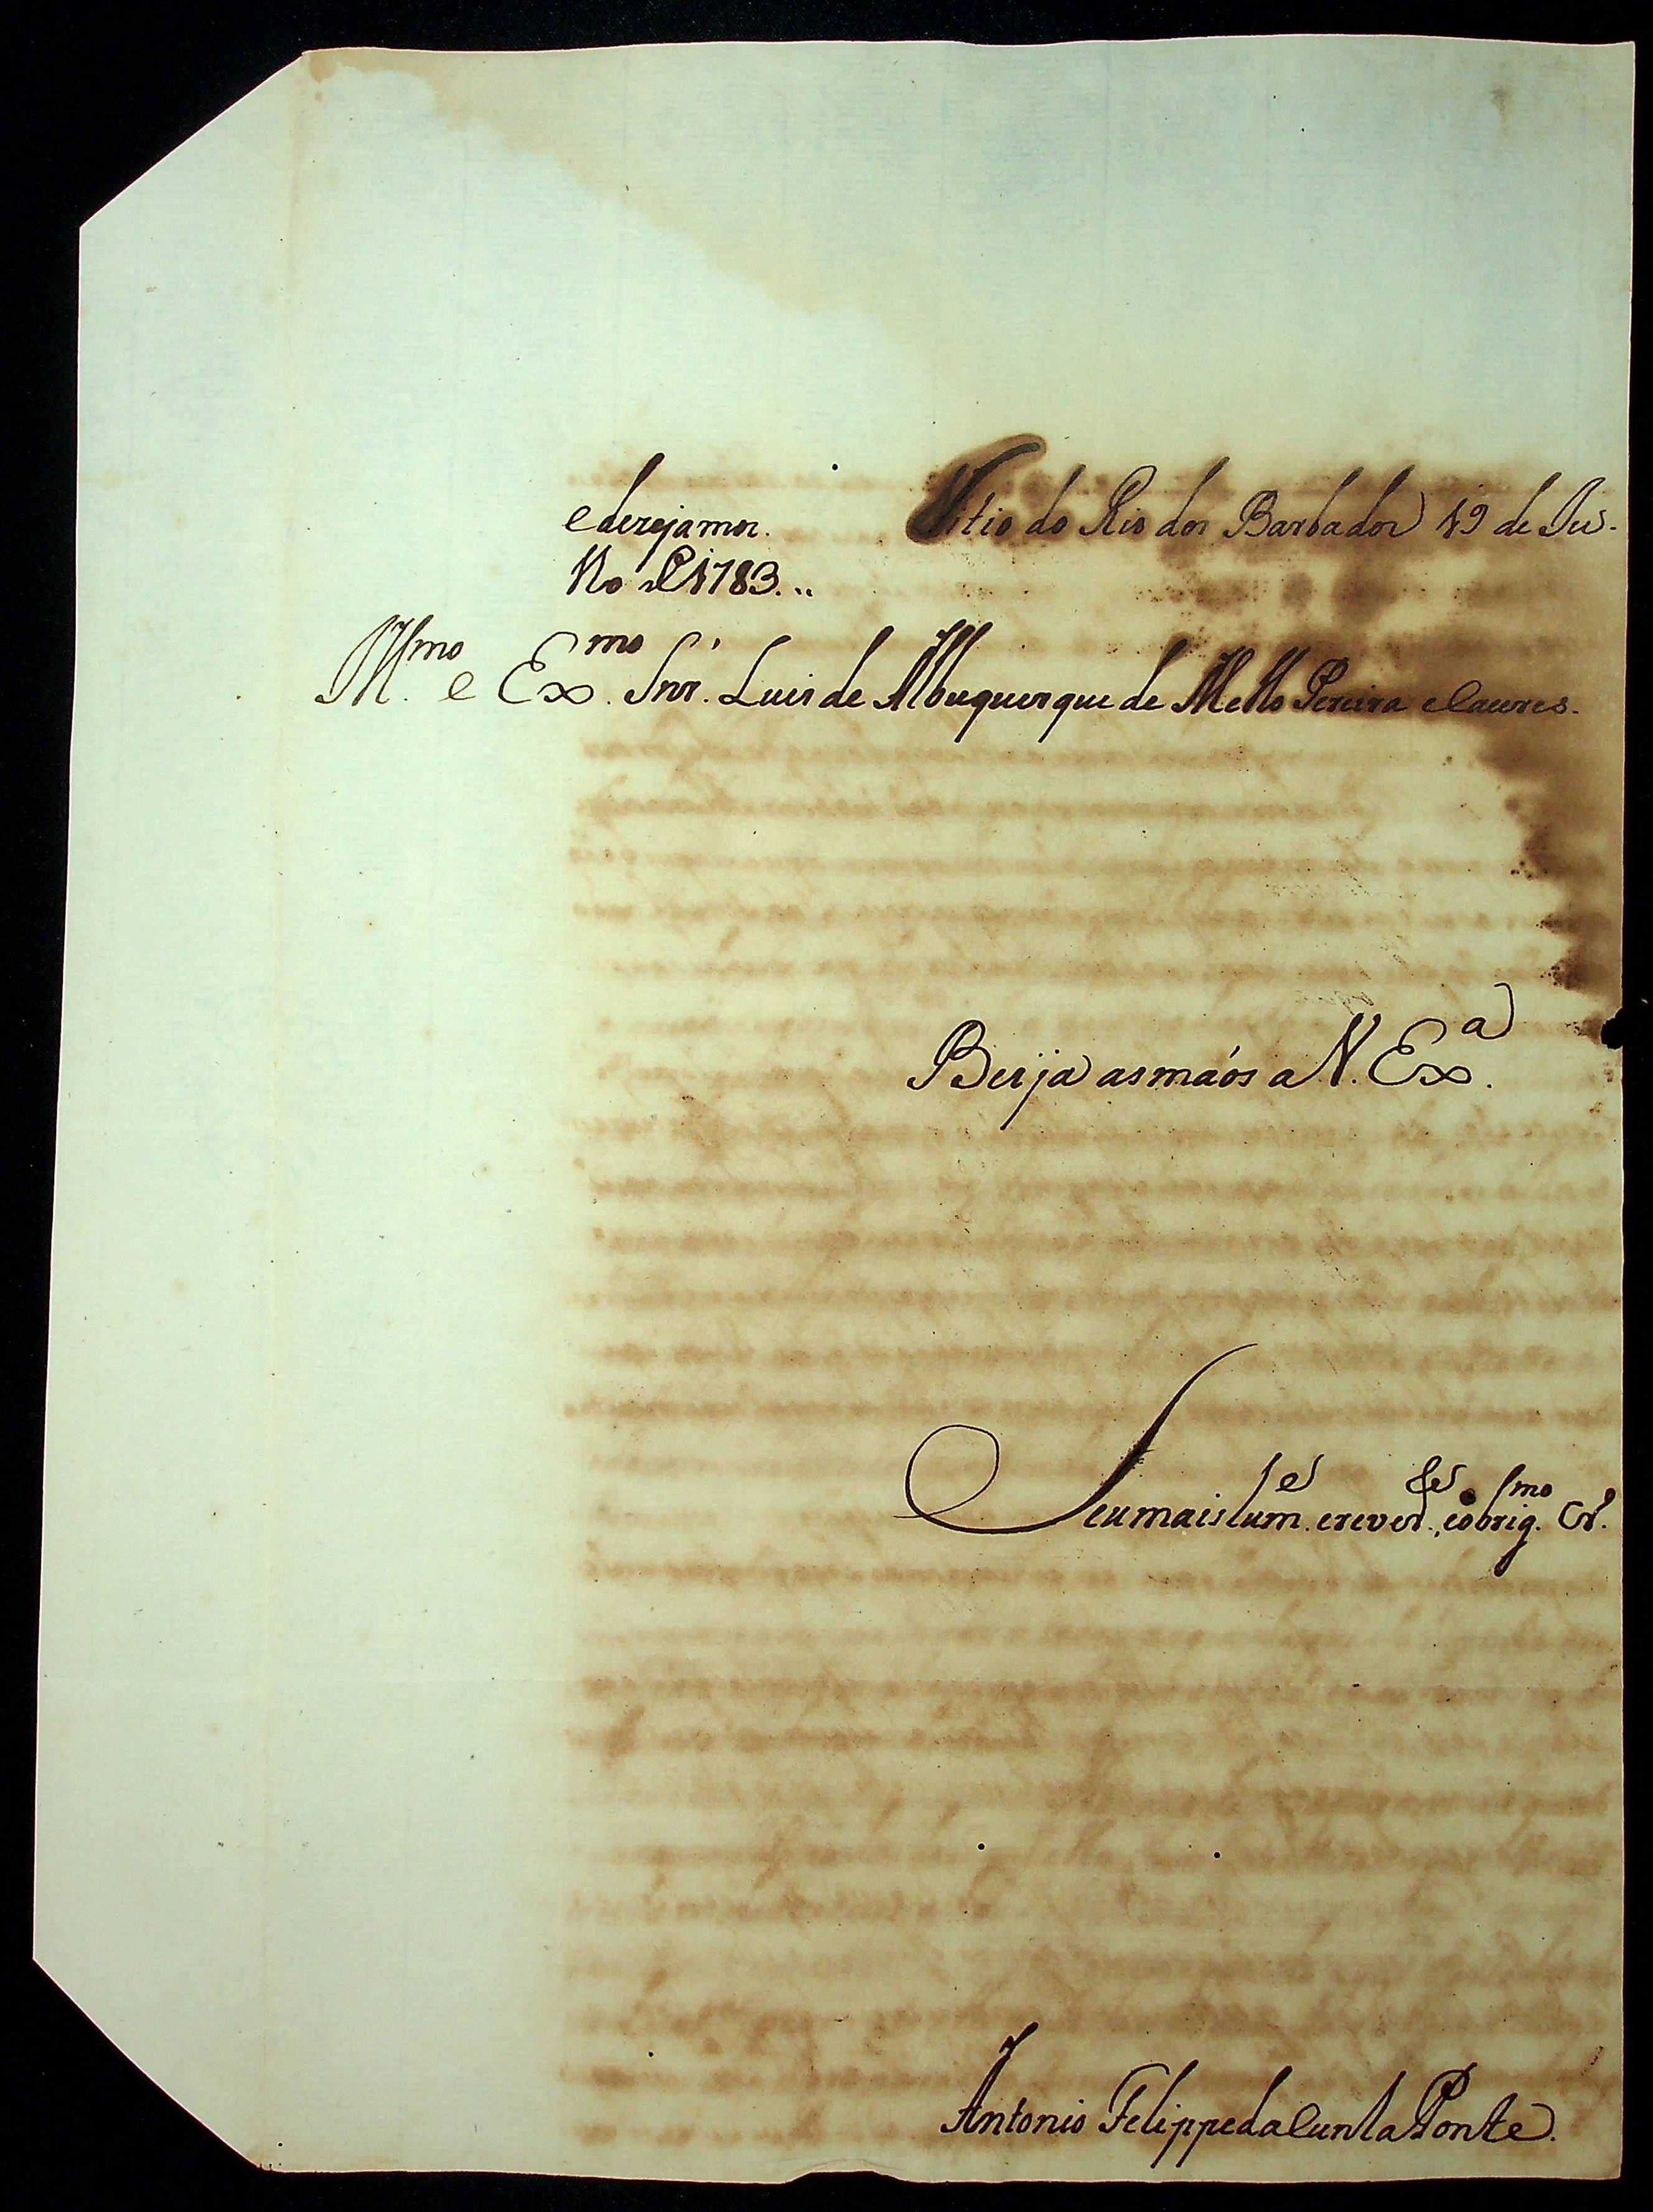 e dezejamos. Sitio do Rio dos Barbados 19 de Ju-
lho de 1783...
Ill.mo e Ex.mo Snr. Luis de Albuquerque de Mello Pereira e Caceres.
Beija as máos a V. Ex.a
Seu mais hum.e e rever.e, e obrig.mo Cr.o
Antonio Felippe da Cunha Ponte.